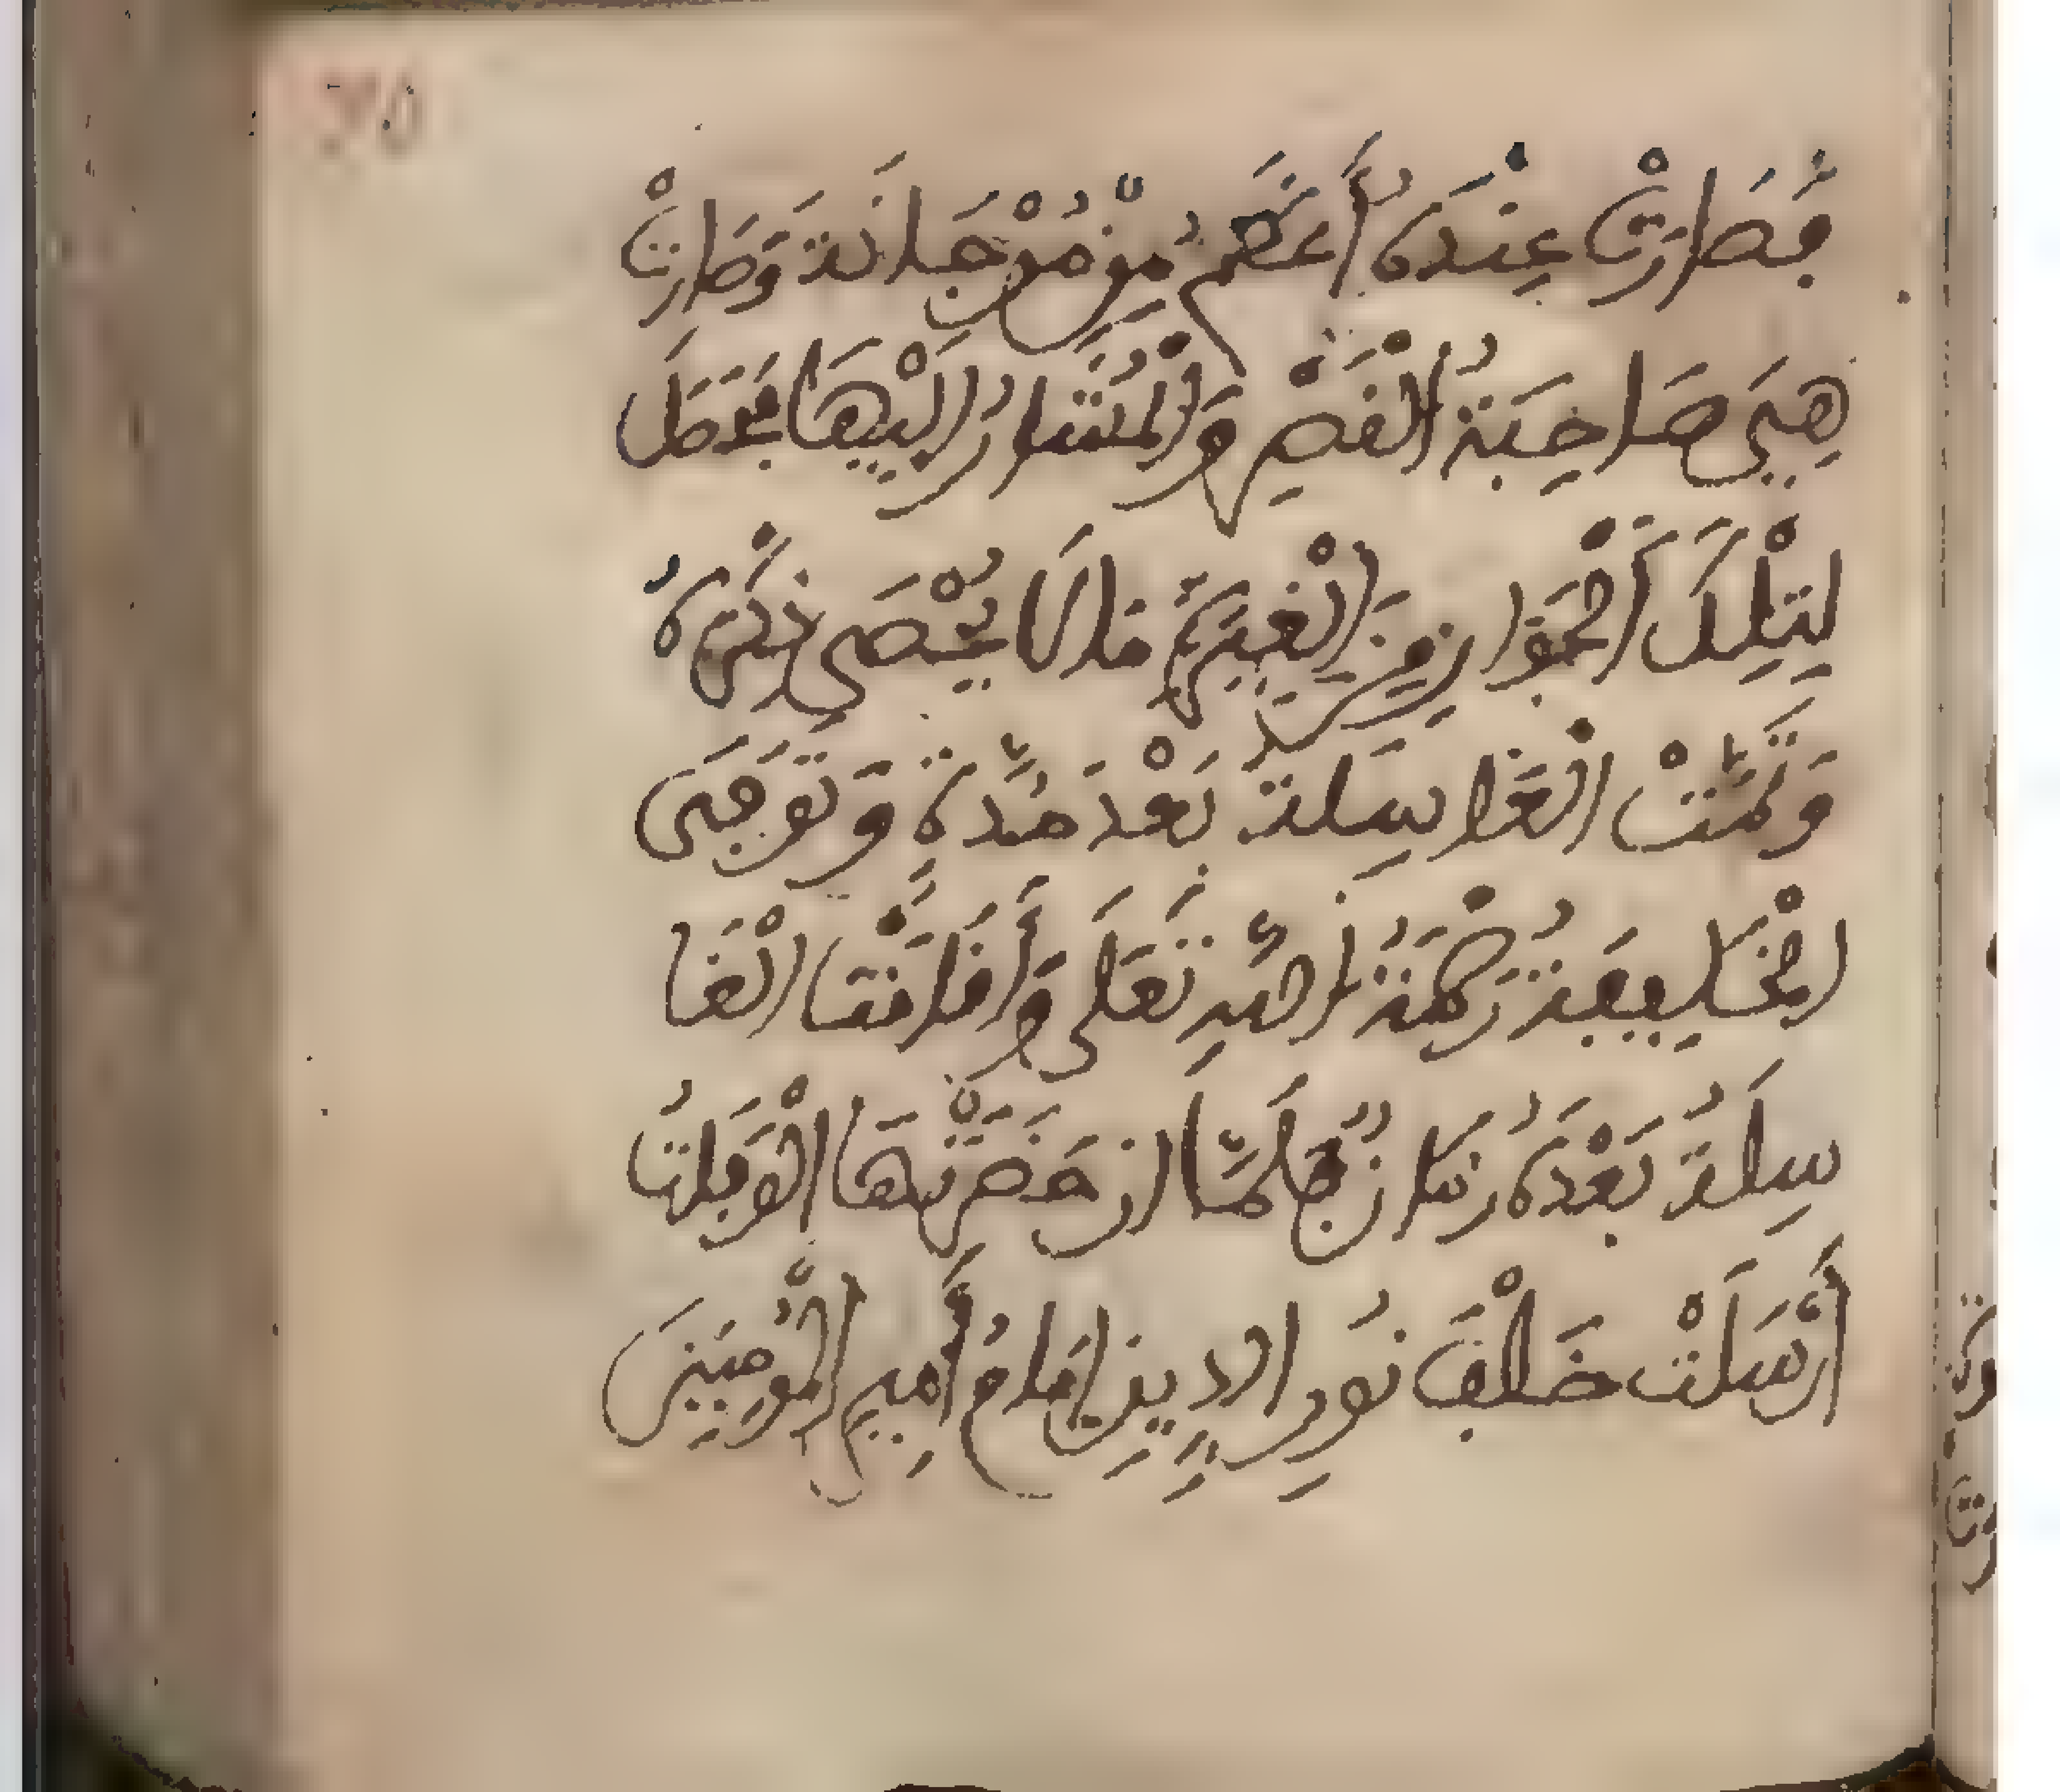 فَصَارَتْ عِنْدَهُ أَعْظَمُ مِنْ مُرْجَانَةَ وَصَارَتْ
هِيَ صَاحِبَةُ الْقَصْرِ وَالْمُشَارُ إِلَيْهَا فَحَصَلَ
لِتِلْكَ الْجَوَارِ مِنَ الْغَيْرَةِ مَا لَا يُحْصَى ذِكْرُهُ
وَتَمَّتْ الْغَاسِلَةُ بَعْدَ مُدَّةٍ وَتُوُفِّيَ
الْخَلِيفَةُ رَحْمَةُ اللَّهِ تَعَلَى وَأَقَامَتْ الْغَا
سِلَةُ بَعْدَهُ زَمَانٌ فَلَمَّا ان حَضَرَتْهَا الْوَفَاتُ
أَرْسَلَتْ خَلْفَ نُورِ الدِّينِ إِمَامُ أَمِيرِ الْمُؤمِنِينَ